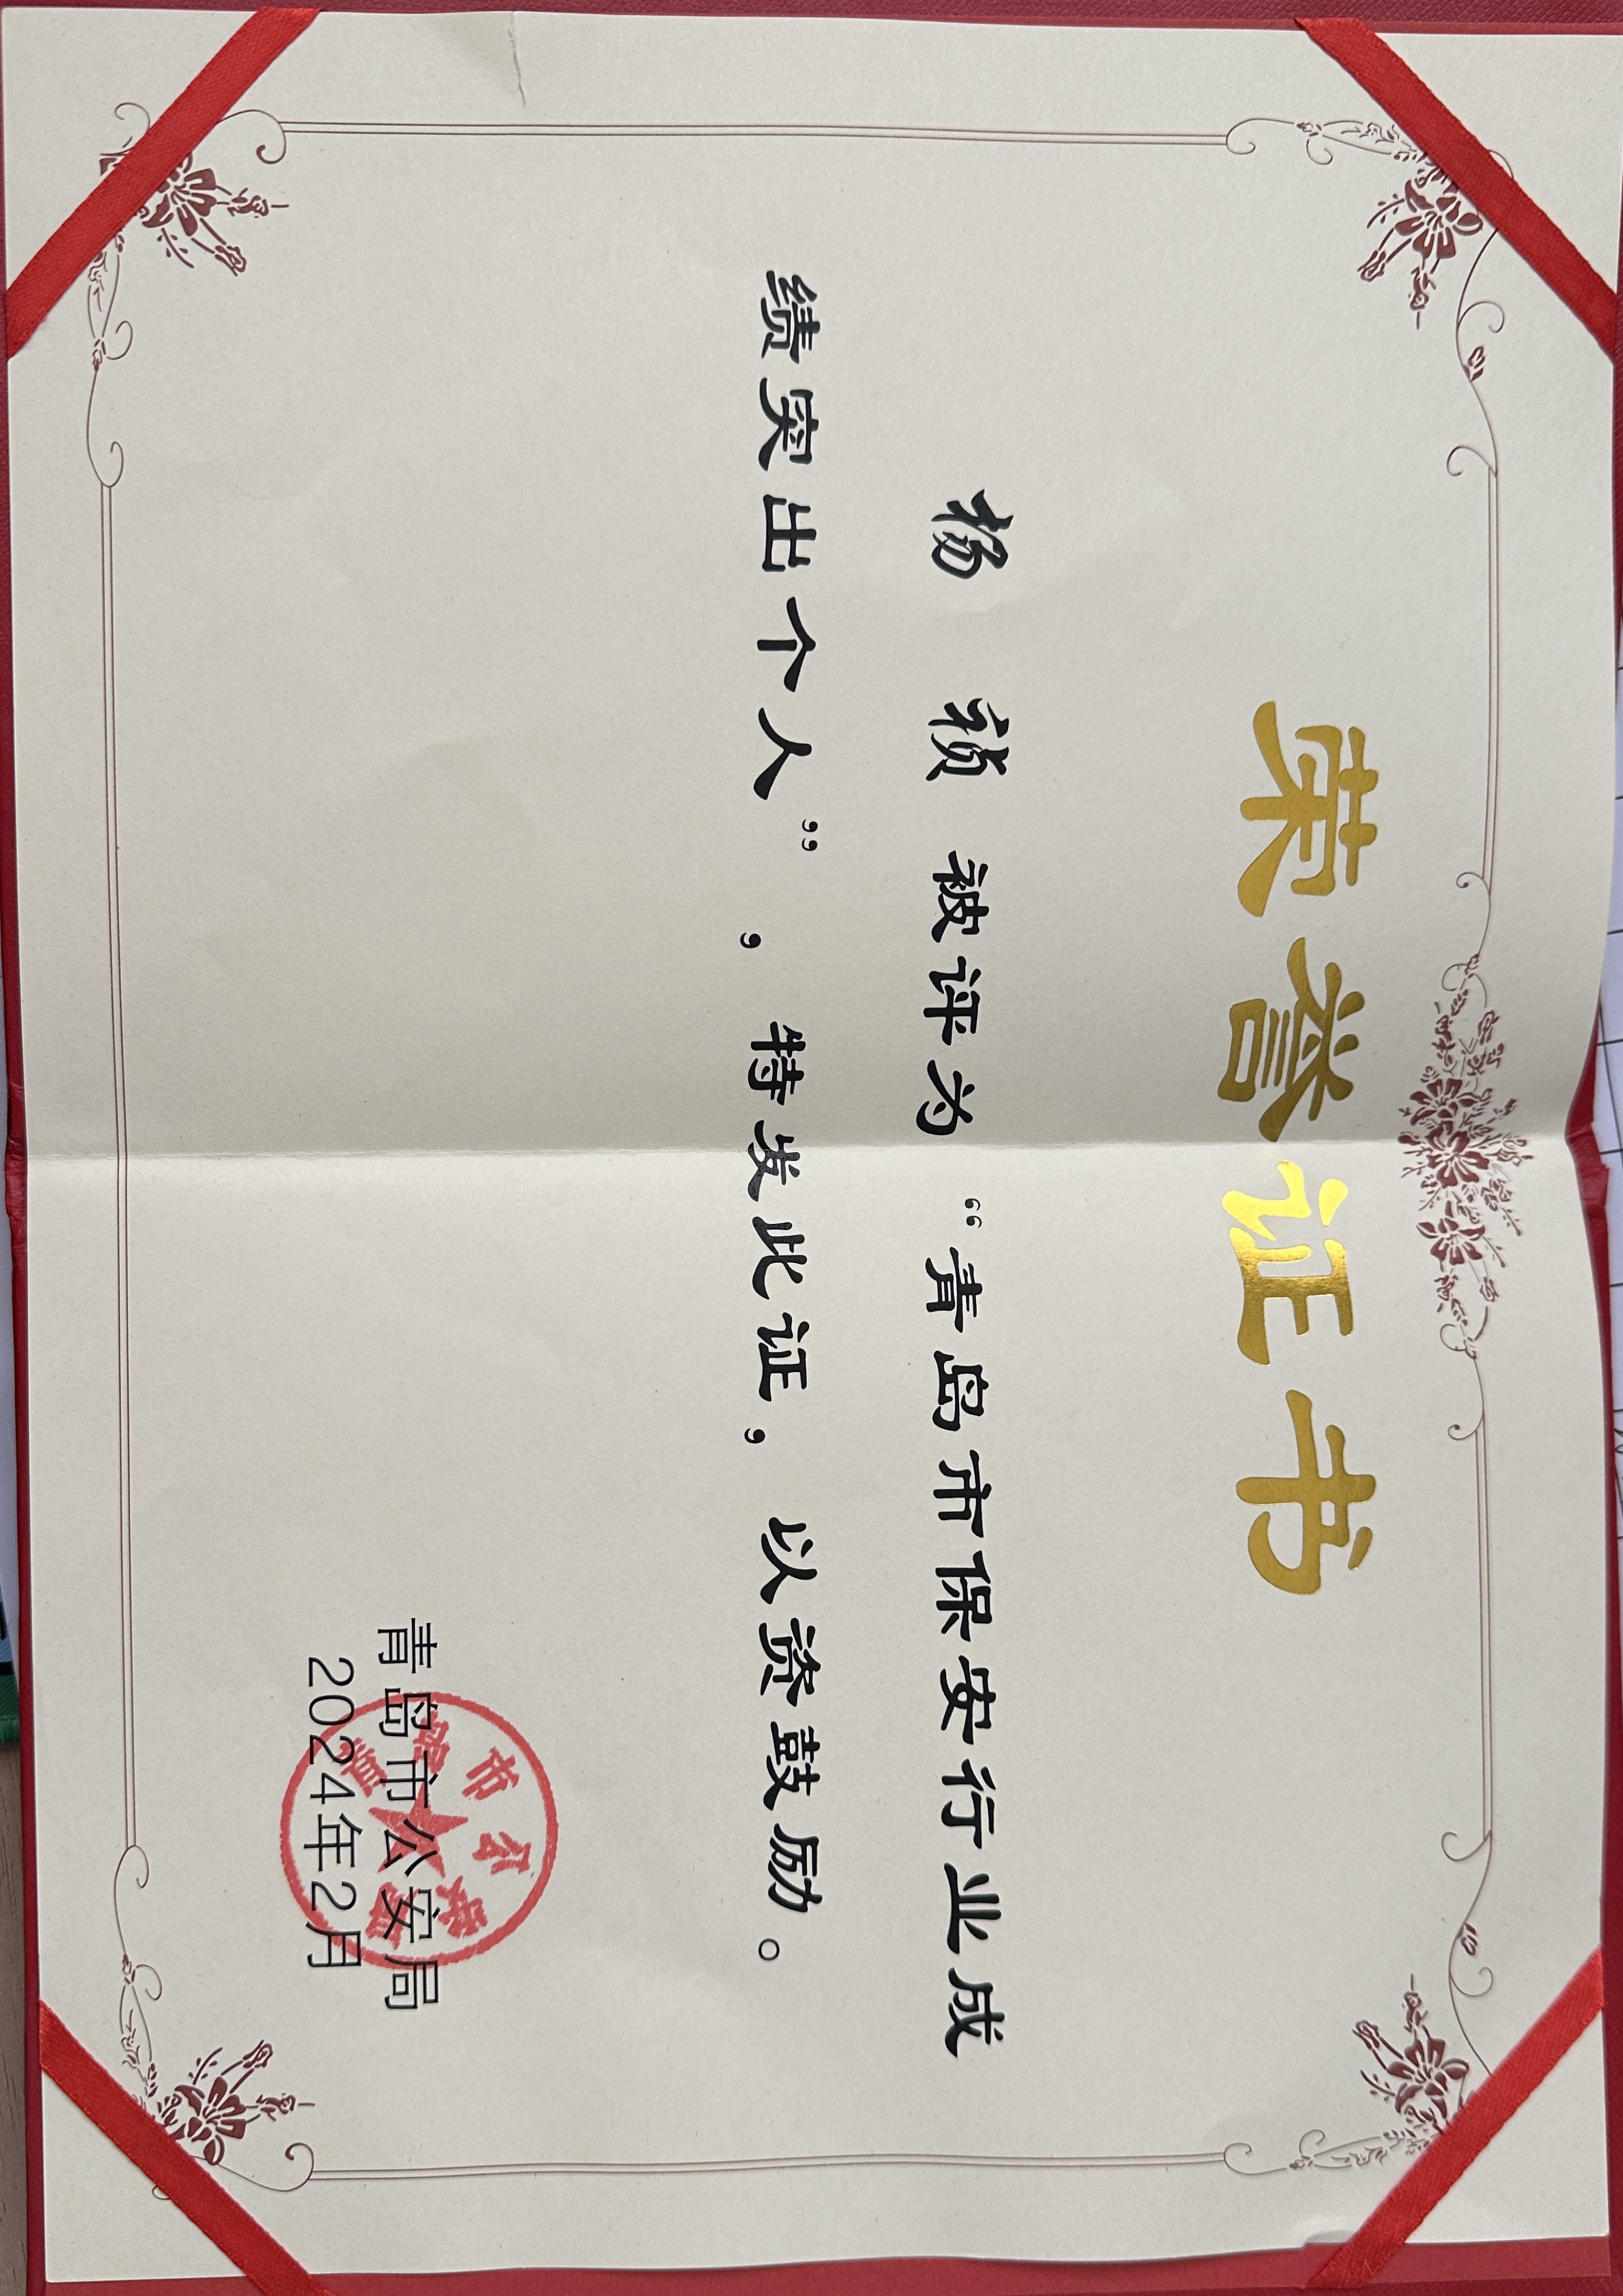 荣誉证书
杨 祯 被评为“青岛市保安行业成
绩突出个人”,特发此证,以资鼓励。
青岛市公安局
2024年2月
青岛市公安局